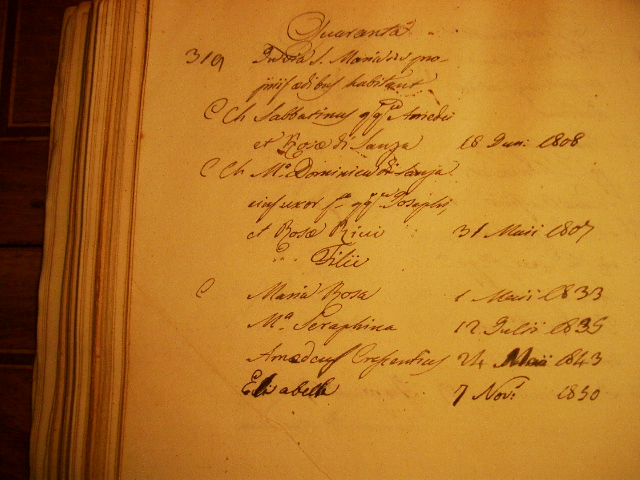 Quaranta
319 In Via S. Mariæ in pro-
priis ædibus habitant
C Ch Sabbatinus qq^m Amedei
et Rosæ di Sanza 18 Jun: 1808
C Ch M^a Dominica di Sanza
eius uxor f^a qq^m Josephi,
et Rosæ Ricci 31 Maii 1807
Filii
C Maria Rosa 1 Maii 1833
M^a Seraphina 12 Julii 1835
Amedeus Crescentius 24 Maii 1843
Elisabeth 7 Nov: 1850